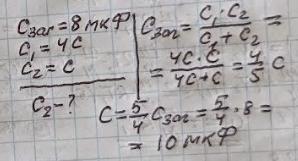 Cзаг = 8 мкФ
C₁ = 4C
C₂ = C
C₂ - ?
Cзаг = C₁ · C₂ / C₁ + C₂ =
= 4C · C / 4C + C = 4/5 C
C = 5/4 Cзаг = 5/4 · 8 =
= 10 мкФ